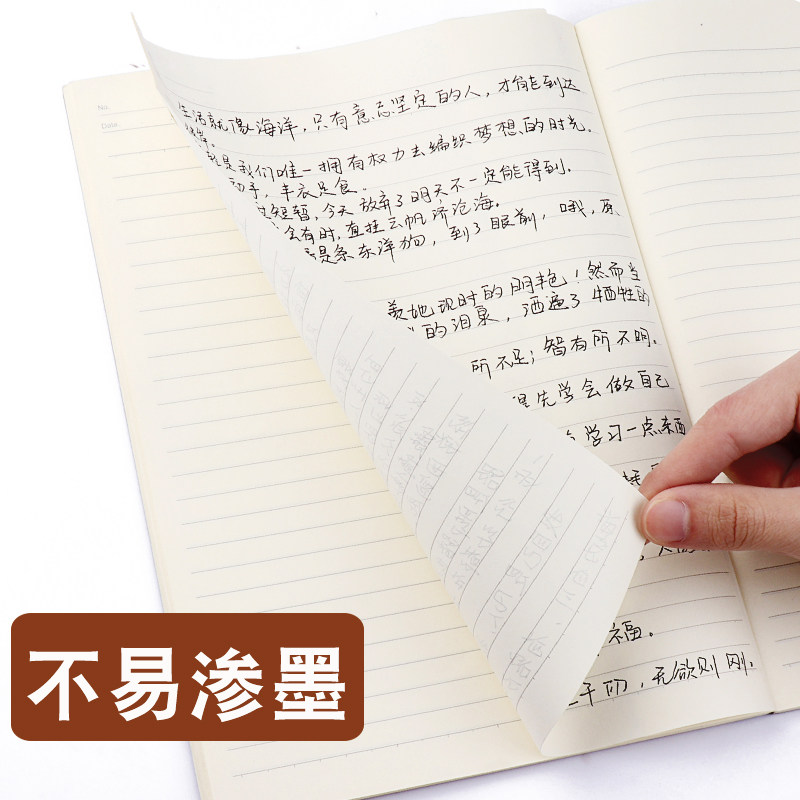 No.
Date.
生活就像海洋，只有意志坚定的人，才能到达
彼岸。
就是我们唯一拥有权力去编织梦想的时光。
动手，丰衣足食。
短暂，今天放弃了明天不一定能得到。
会有时，直挂云帆济沧海。
是条东洋狗，到了眼前，哦，原
羡她现时的明艳！然而当
的泪泉，洒遍了牺牲的
所不足；智有所不明。
得先学会做自己
学习一点东西
福。
千仞，无欲则刚。
不易渗墨